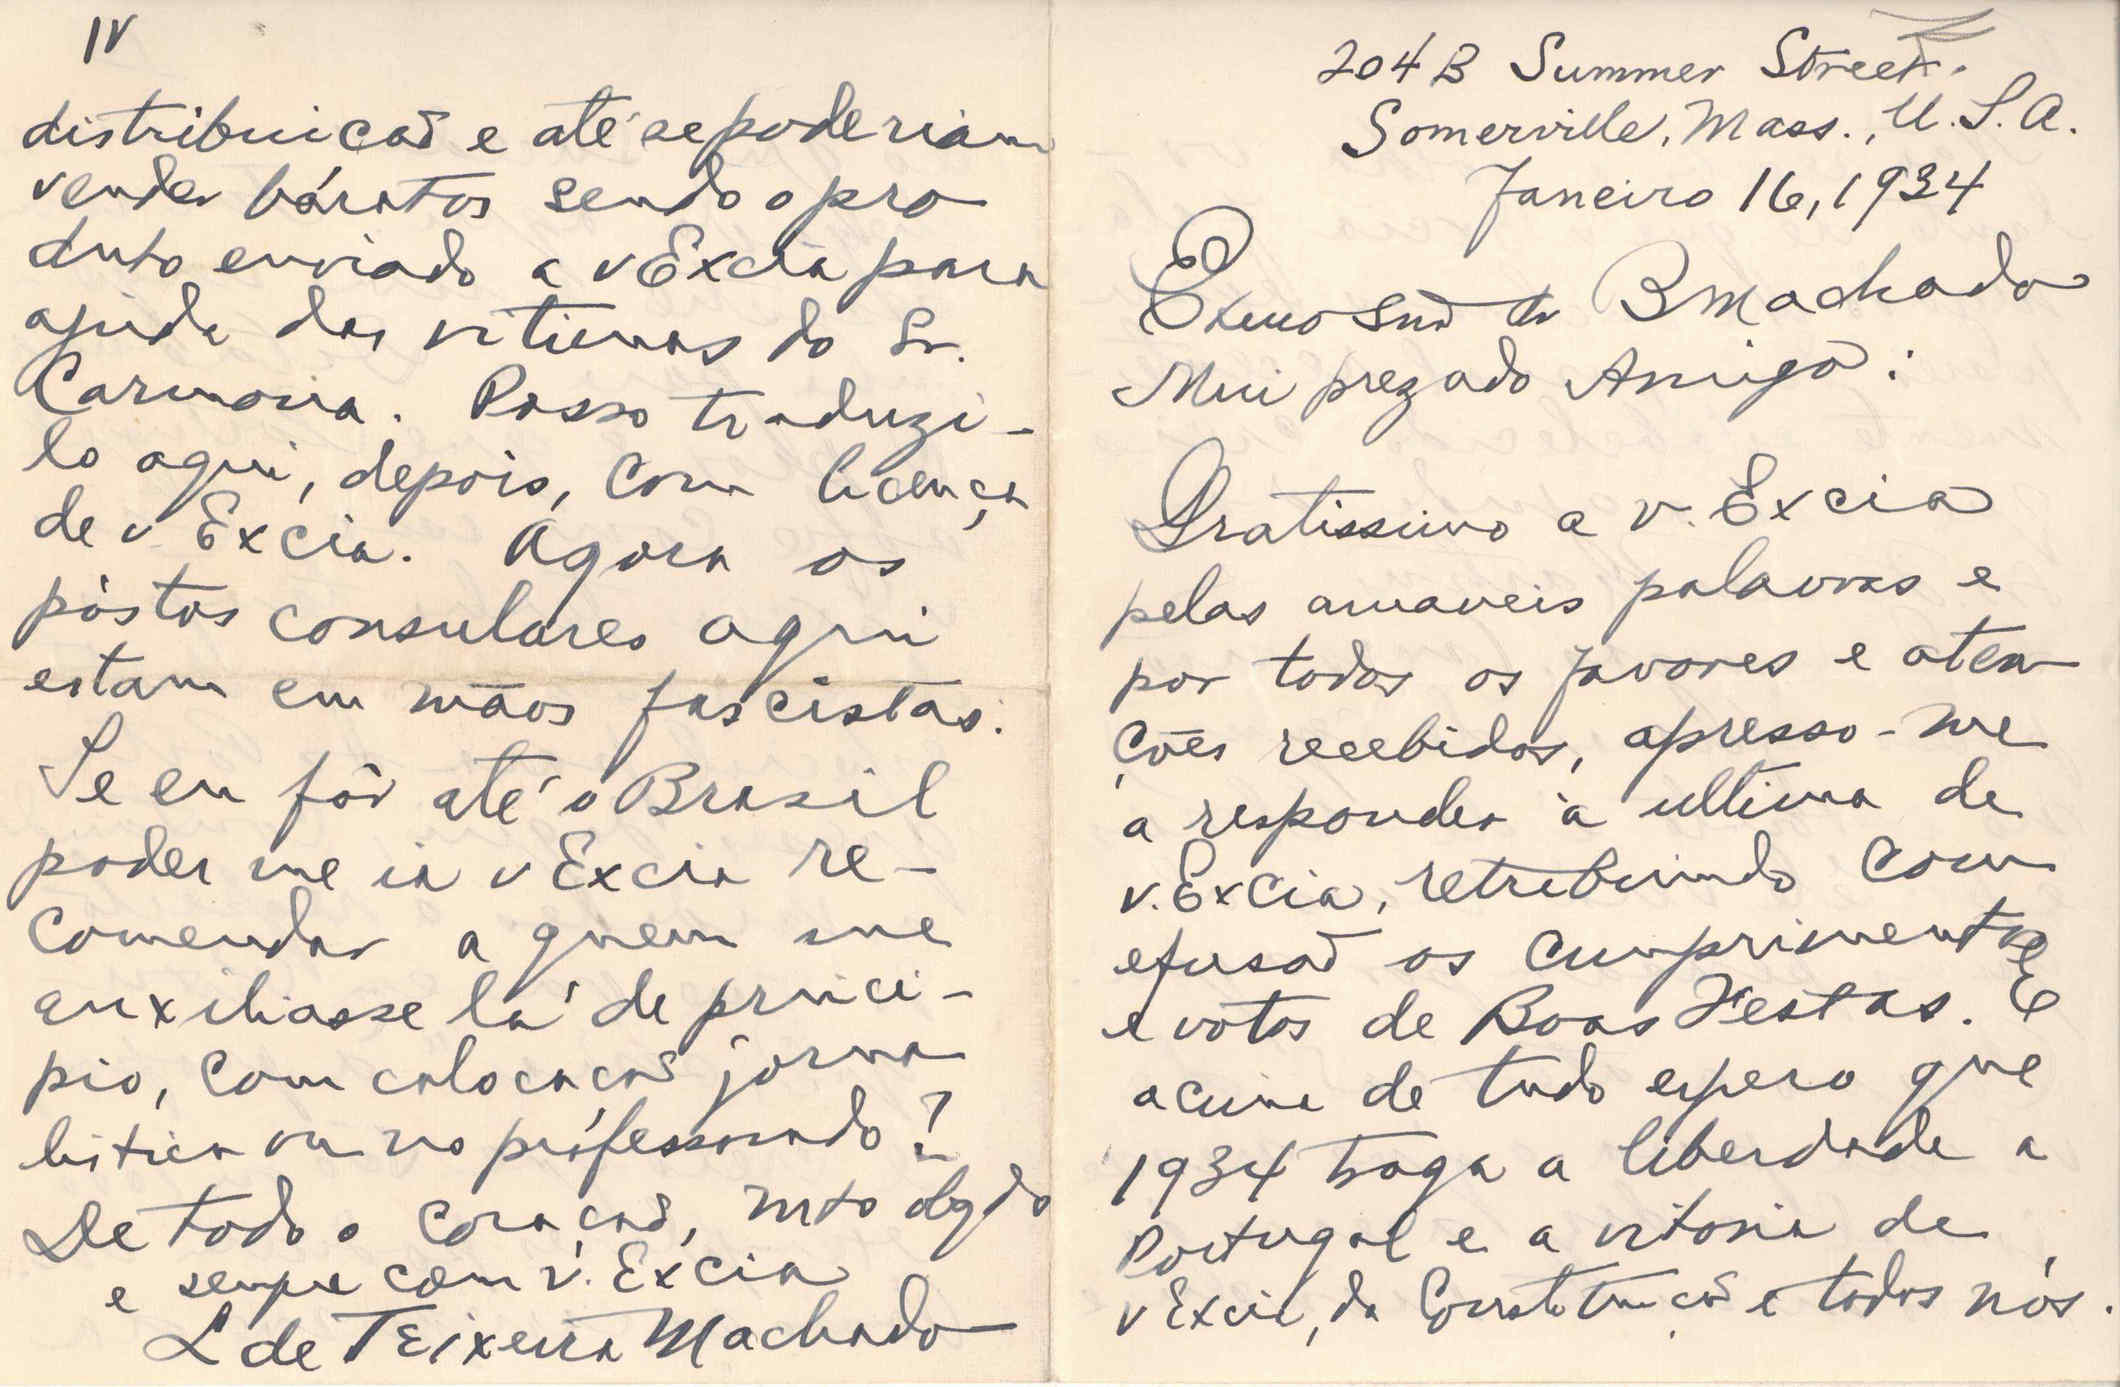 204 B Summer Street.
Somerville, Mass., U.S.A.
Janeiro 16, 1934
Exmo Snr Dr B Machado
Mui prezado Amigo:
Gratissimo a v. Excia
pelas amaveis palavras e
por todos os favores e aten
ções recebidos, apresso-me
a responder à ultima de
v. Excia, retribuindo com
efusão os cumprimentos
e votos de Boas Festas. E
acima de tudo espero que
1934 traga a liberdade a
Portugal e a vitoria de
v Excia, da Constituição e todos nós.
IV
distribuição e até se poderiam
vender báratos sendo o pro
duto enviado a v Excia para
ajuda das vitimas do Sr.
Carmona. Posso traduzi-
lo aqui, depois, com licença
de v Excia. Agora os
póstos consulares aqui
estam em mãos fascistas.
Se eu fôr até o Brasil
poder me ia v Excia re-
comendar a quem me
auxiliasse lá de princi-
pio, com colocação jorna
listica ou no professorado?
De todo o coração, mto obgdo
e sempre com v. Excia
L de Teixeira Machado